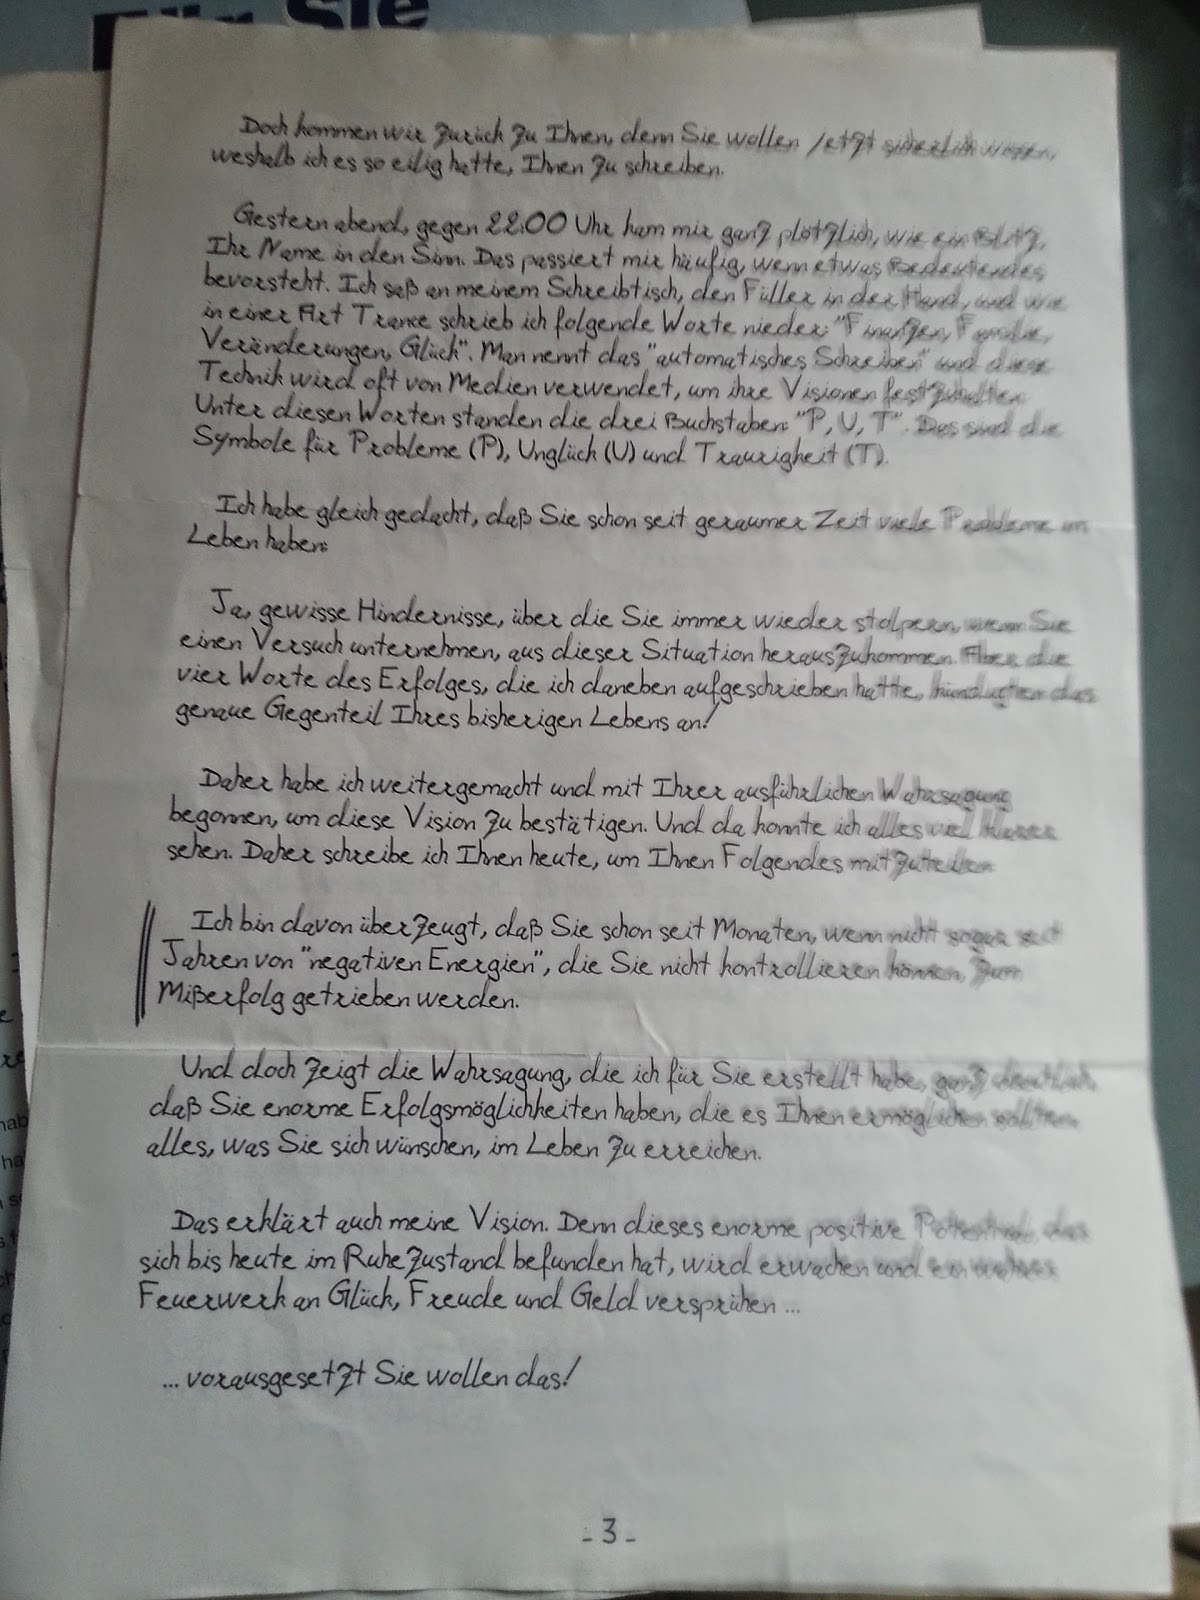 Für Sie
Doch kommen wir zurück zu Ihnen, denn Sie wollen jetzt sicherlich wissen,
weshalb ich es so eilig hatte, Ihnen zu schreiben.
Gestern abend, gegen 22.00 Uhr kam mir ganz plötzlich, wie ein Blitz,
Ihr Name in den Sinn. Das passiert mir häufig, wenn etwas Bedeutendes
bevorsteht. Ich saß an meinem Schreibtisch, den Füller in der Hand, und wie
in einer Art Trance schrieb ich folgende Worte nieder: "Finanzen, Familie,
Veränderungen, Glück". Man nennt das "automatisches Schreiben" und diese
Technik wird oft von Medien verwendet, um ihre Visionen festzuhalten.
Unter diesen Worten standen die drei Buchstaben: "P, U, T". Das sind die
Symbole für Probleme (P), Unglück (U) und Traurigkeit (T).
Ich habe gleich gedacht, daß Sie schon seit geraumer Zeit viele Probleme im
Leben haben:
Ja, gewisse Hindernisse, über die Sie immer wieder stolpern, wenn Sie
einen Versuch unternehmen, aus dieser Situation herauszukommen. Aber die
vier Worte des Erfolges, die ich daneben aufgeschrieben hatte, kündigten das
genaue Gegenteil Ihres bisherigen Lebens an!
Daher habe ich weitergemacht und mit Ihrer ausführlichen Wahrsagung
begonnen, um diese Vision zu bestätigen. Und da konnte ich alles viel klarer
sehen. Daher schreibe ich Ihnen heute, um Ihnen Folgendes mitzuteilen:
Ich bin davon überzeugt, daß Sie schon seit Monaten, wenn nicht sogar seit
Jahren von "negativen Energien", die Sie nicht kontrollieren können, zum
Mißerfolg getrieben werden.
Und doch zeigt die Wahrsagung, die ich für Sie erstellt habe, ganz deutlich,
daß Sie enorme Erfolgsmöglichkeiten haben, die es Ihnen ermöglichen sollten,
alles, was Sie sich wünschen, im Leben zu erreichen.
Das erklärt auch meine Vision. Denn dieses enorme positive Potential, das
sich bis heute im Ruhezustand befunden hat, wird erwachen und ein wahres
Feuerwerk an Glück, Freude und Geld versprühen ...
... vorausgesetzt Sie wollen das!
- 3 -